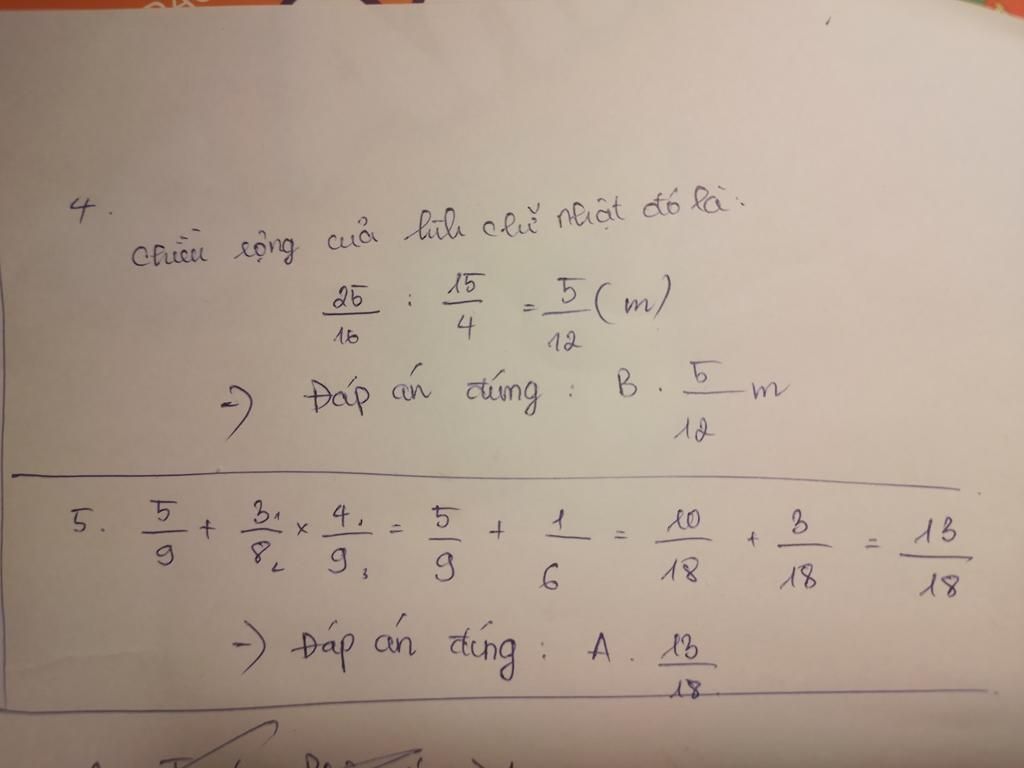 4.
Chiều rộng của hình chữ nhật đó là:
25/16 : 15/4 = 5/12 (m)
=> Đáp án đúng : B. 5/12 m
5. 5/9 + 3₁/8₂ × 4₁/9₃ = 5/9 + 1/6 = 10/18 + 3/18 = 13/18
=> Đáp án đúng : A. 13/18